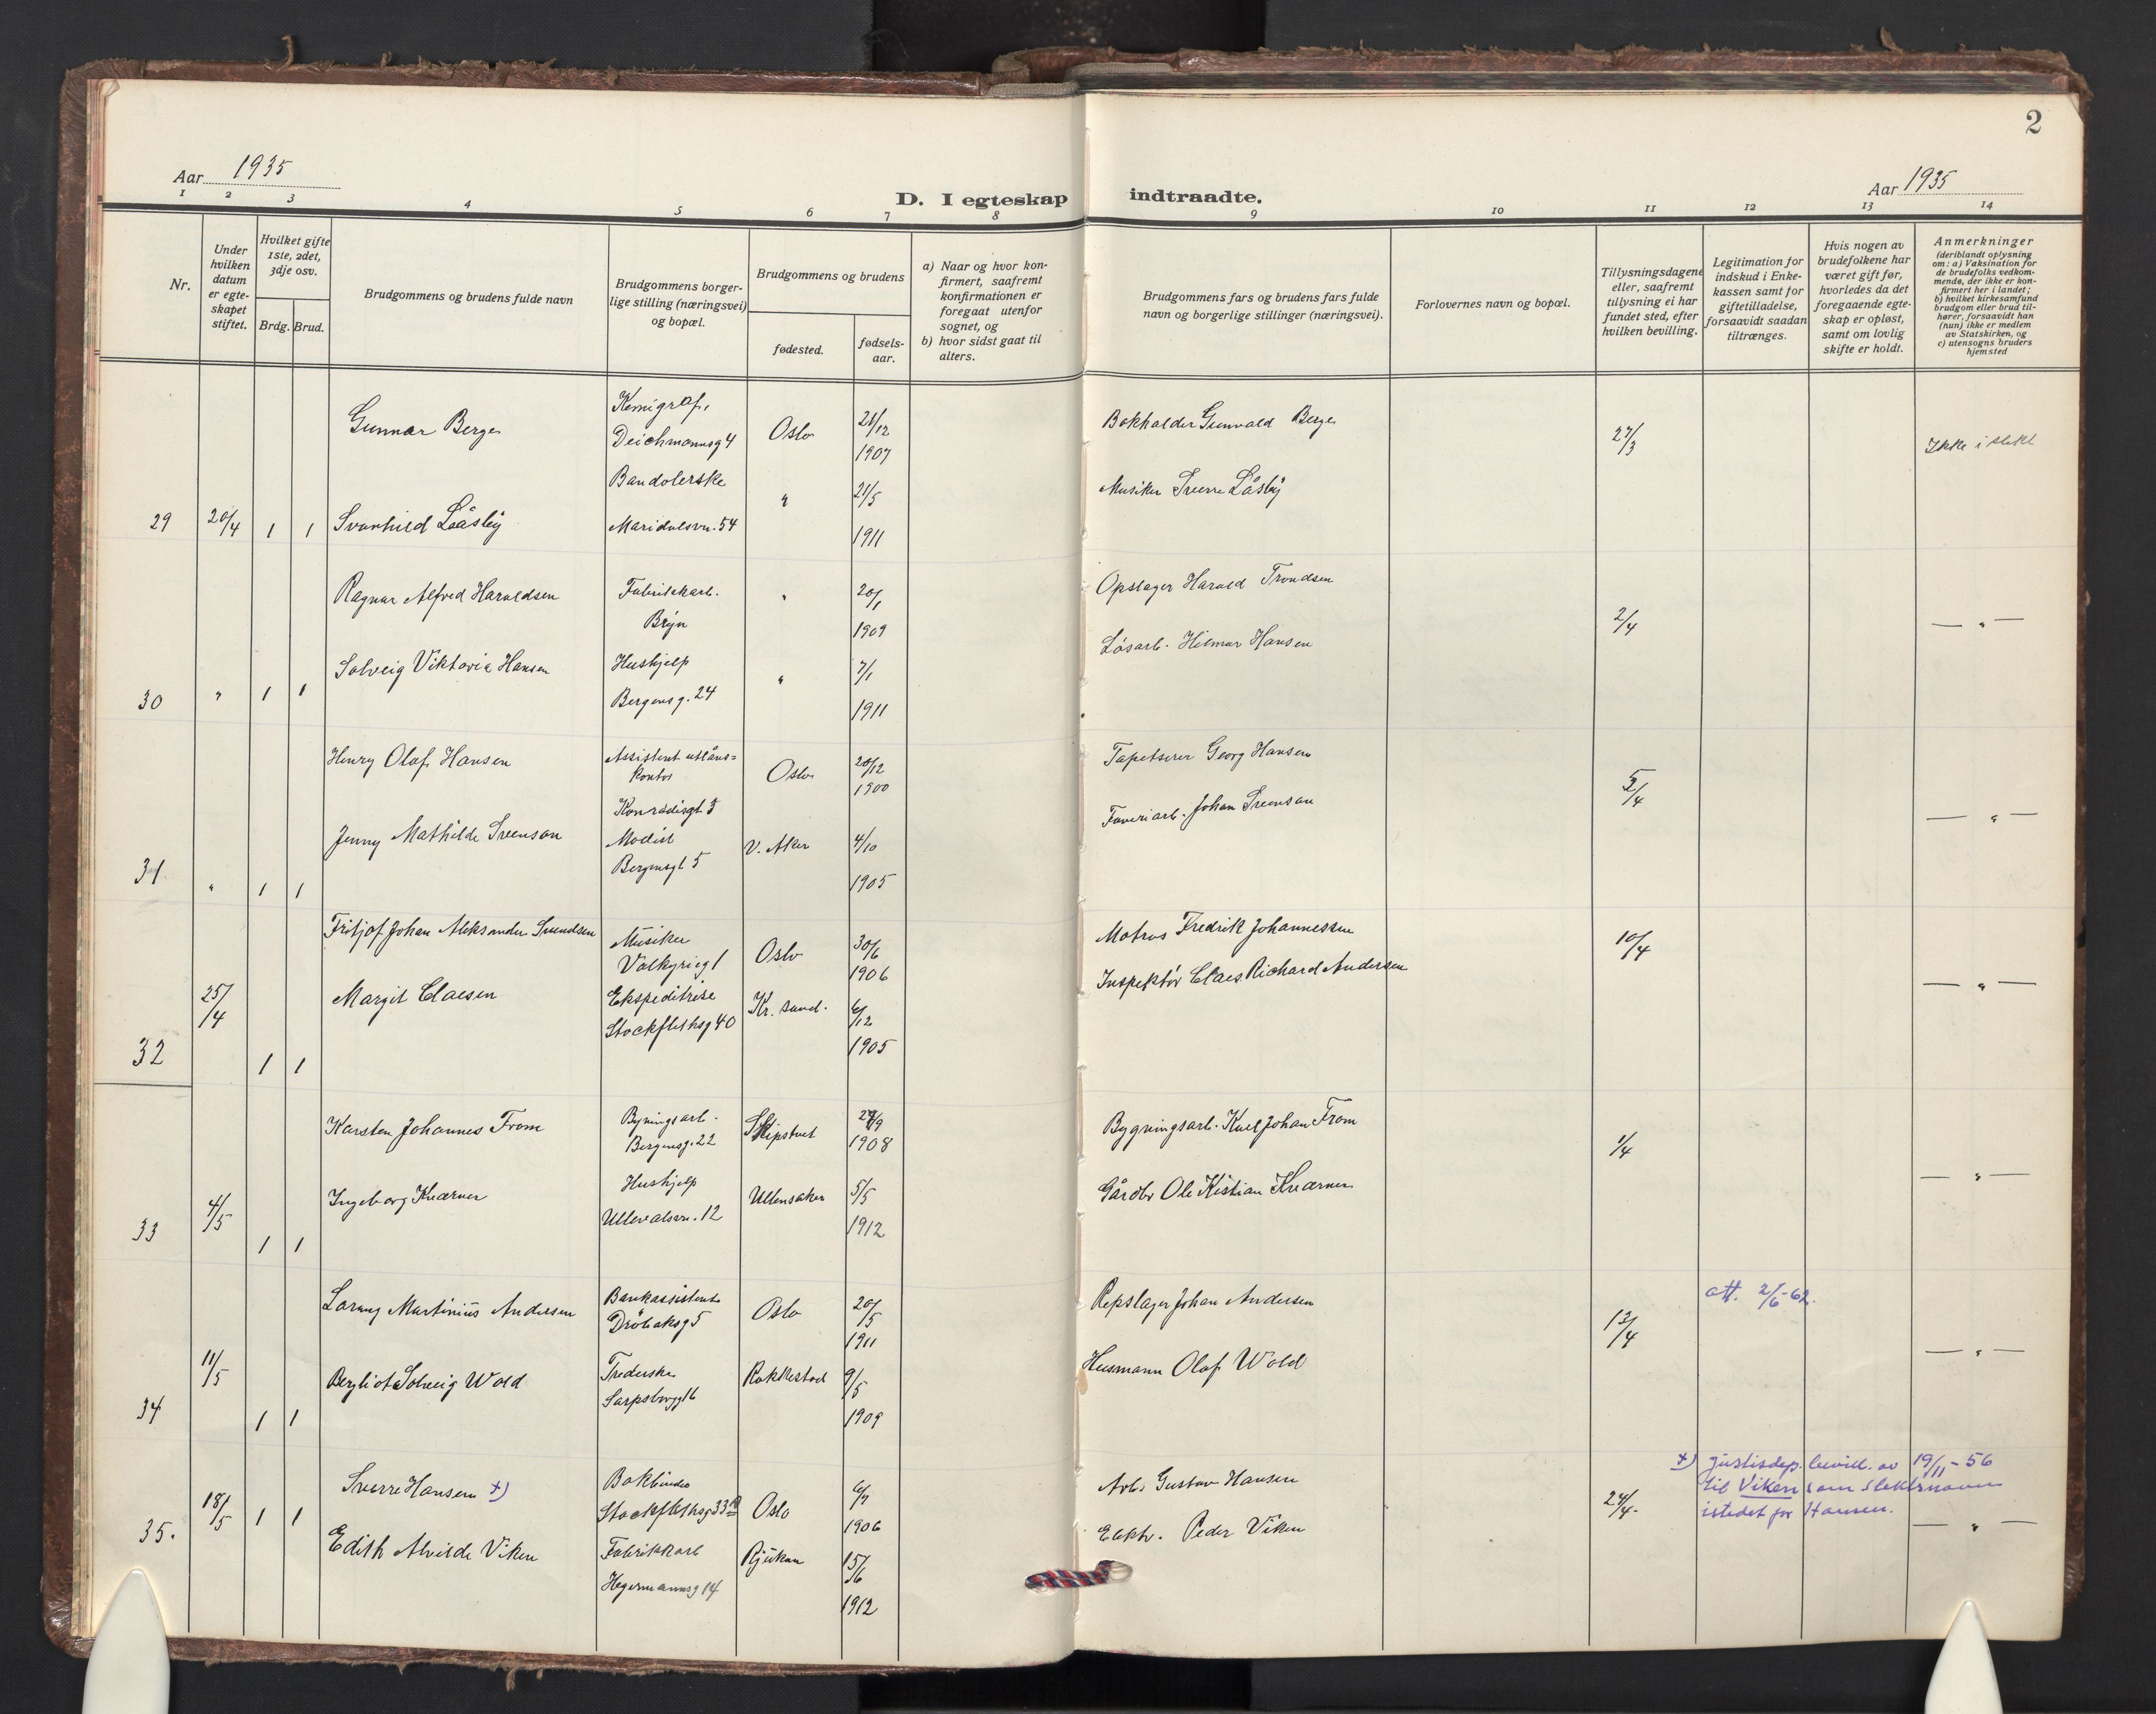 2
Aar 1935
D. I egteskap indtraadte.
Aar 1935
1 2 3 4 5 6 7 8 9 10 11 12 13 14
Nr.
Under hvilken datum er egteskapet stiftet.
Hvilket gifte 1ste, 2det, 3dje osv.
Brdg. Brud.
Brudgommens og brudens fulde navn
Brudgommens borgerlige stilling (næringsvei) og bopæl.
Brudgommens og brudens
fødested.
fødselsaar.
a) Naar og hvor konfirmert, saafremt konfirmationen er foregaat utenfor sognet, og
b) hvor sidst gaat til alters.
Brudgommens fars og brudens fars fulde navn og borgerlige stillinger (næringsvei).
Forlovernes navn og bopæl.
Tillysningsdagene eller, saafremt tillysning ei har fundet sted, efter hvilken bevilling.
Legitimation for indskud i Enkekassen samt for giftetilladelse, forsaavidt saadan tiltrænges.
Hvis nogen av brudefolkene har været gift før, hvorledes da det foregaaende egteskap er opløst, samt om lovlig skifte er holdt.
Anmerkninger (deriblandt oplysning om: a) Vaksination for de brudefolks vedkommende, der ikke er konfirmert her i landet; b) hvilket kirkesamfund brudgom eller brud tilhører, forsaavidt han (hun) ikke er medlem av Statskirken, og c) utensogns bruders hjemsted
Gunnar Berge
Kemigraf,
Deichmannsg 4
Oslo
21/12
1907
Bokholder Gunvald Berge
27/3
Ikke i slekt
29 20/4 1 1
Svanhild Laåsby
Bandolerske
Maridalsvn. 54
"
21/5
1911
Musiker Sverre Låsby
Ragnar Alfred Haraldsen
Fabrikkarb.
Bryn
"
20/1
1909
Opslager Harald Trondsen
2/4
— " —
30 " 1 1
Solveig Viktoria Hansen
Hushjelp
Bergensg. 24
"
7/1
1911
Løsarb. Hilmar Hansen
Henry Olaf Hansen
Assistent utlåns=
kontor
Konradisgt 5
Oslo
20/12
1900
Tapetserer Georg Hansen
5/4
— " —
31 " 1 1
Jenny Mathilde Svenson
Modist
Bergensgt 5
V. Aker
4/10
1905
Johan Svenson
Fritjof Johan Aleksander Svendsen
Musiker
Valkyrieg 1
Oslo
30/6
1906
Matros Fredrik Johannessen
10/4
— " —
32 25/4 1 1
Margit Claesen
Ekspeditrise
Stockflethsg 40
Kr. sand.
6/12
1905
Inspektør Claes Richard Andersen
Karsten Johannes From
Bygningsarb.
Bergensg. 22
Skiptvet
1908
Bygningsarb. Karl Johan From
1/4
— " —
33 4/5 1 1
Ingeborg Kværner
Hushjelp
Ullevalsvn. 12
Ullensaker
5/5
1912
Gårdbr Ole Kristian Kværner
Martinius Andersen
Bankassistent
Drøbaksg 5
Oslo
20/5
1911
Repslager Johan Andersen
13/4
att. 2/6-62.
— " —
34 11/5 1 1
Bergliot Solveig Wold
Sarpsborgg 16
Rakkestad
9/5
1909
Husmann Olaf Wold
Sverre Hansen x)
Bokbinder
Stockflethsg 33
Oslo
6/7
1906
Arb. Gustav Hansen
24/4.
x) Justisdep. bevill. av 19/11-56
til Viken som slektsnavn
istedet for Hansen.
— " —
35. 18/5 1 1
Edith Alvilde Viken
Fabrikkarb
Hegermannsg 14
Rjukan
15/6
1912
Elektr. Peder Viken